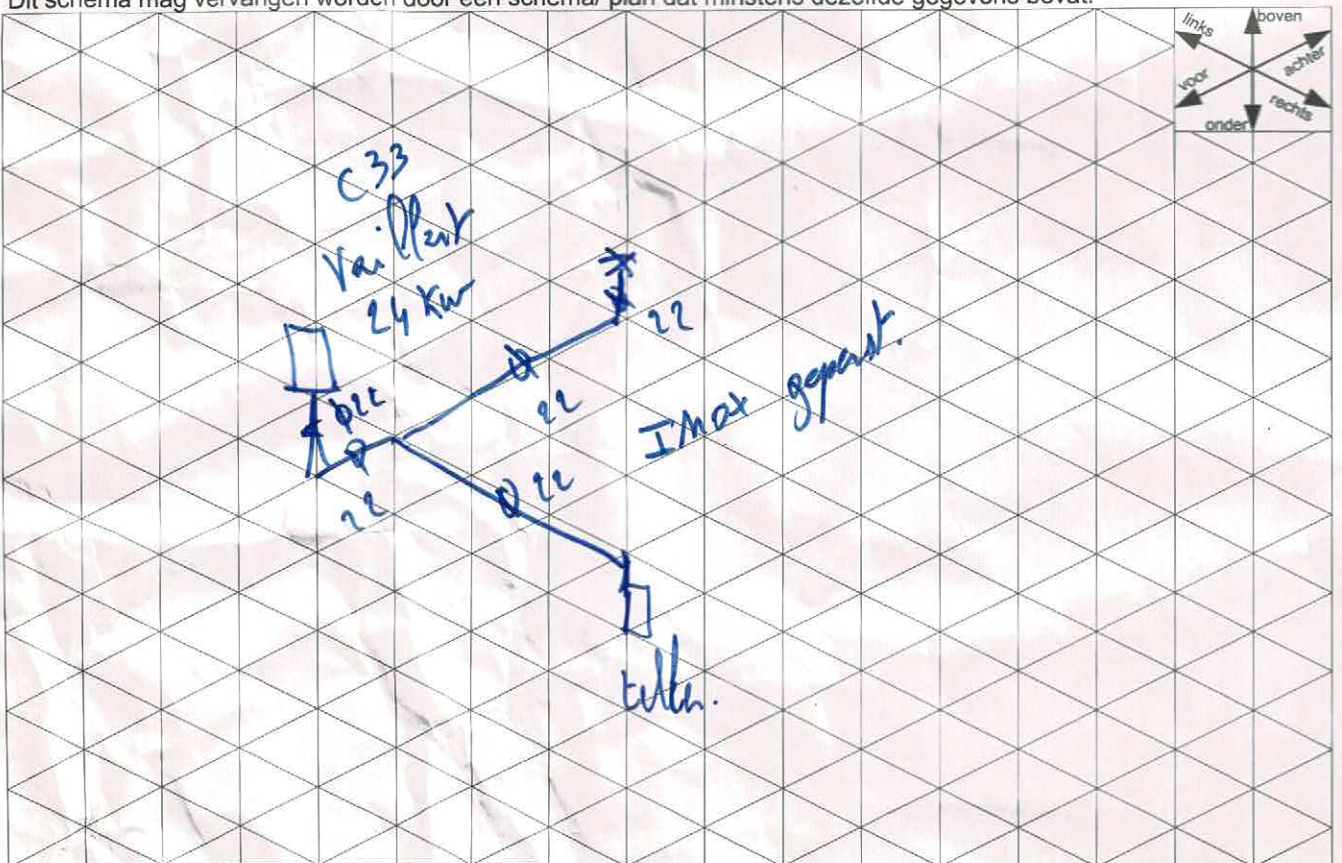 Dit schema mag vervangen worden door een schema/ plan dat minstens dezelfde gegevens bevat.
links
boven
achter
voor
rechts
onder
C33
Vaillant
24 Kw
22
22
ø22
22
22
Inox geperst.
teller.